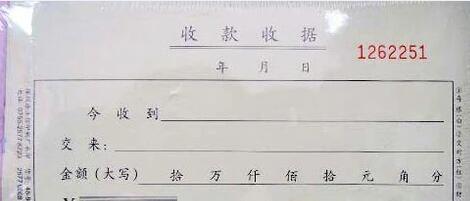 收款收据
1262251
年 月 日
今收到
交来：
金额（大写） 拾 万 仟 佰 拾 元 角 分
¥